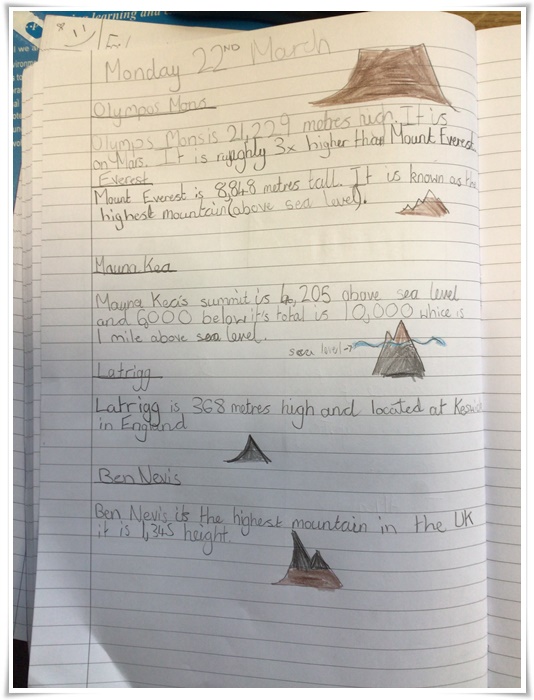 learning and
Monday 22ND March
Olympos Mons
Olympos Mons is 21,229 metres high. It is
on Mars. It is roughly 3x higher than Mount Everest
Everest
Mount Everest is 8,848 metres tall. It is known as the
highest mountain (above sea level).
Mauna Kea
Mauna Kea's summit is 4,205 above sea level
and 6000 below it's total is 10,000 whice is
1 mile above sea level.
sea level→
Latrigg
Latrigg is 368 metres high and located at Keswick
in England
Ben Nevis
Ben Nevis is the highest mountain in the UK
it is 1,345 height.